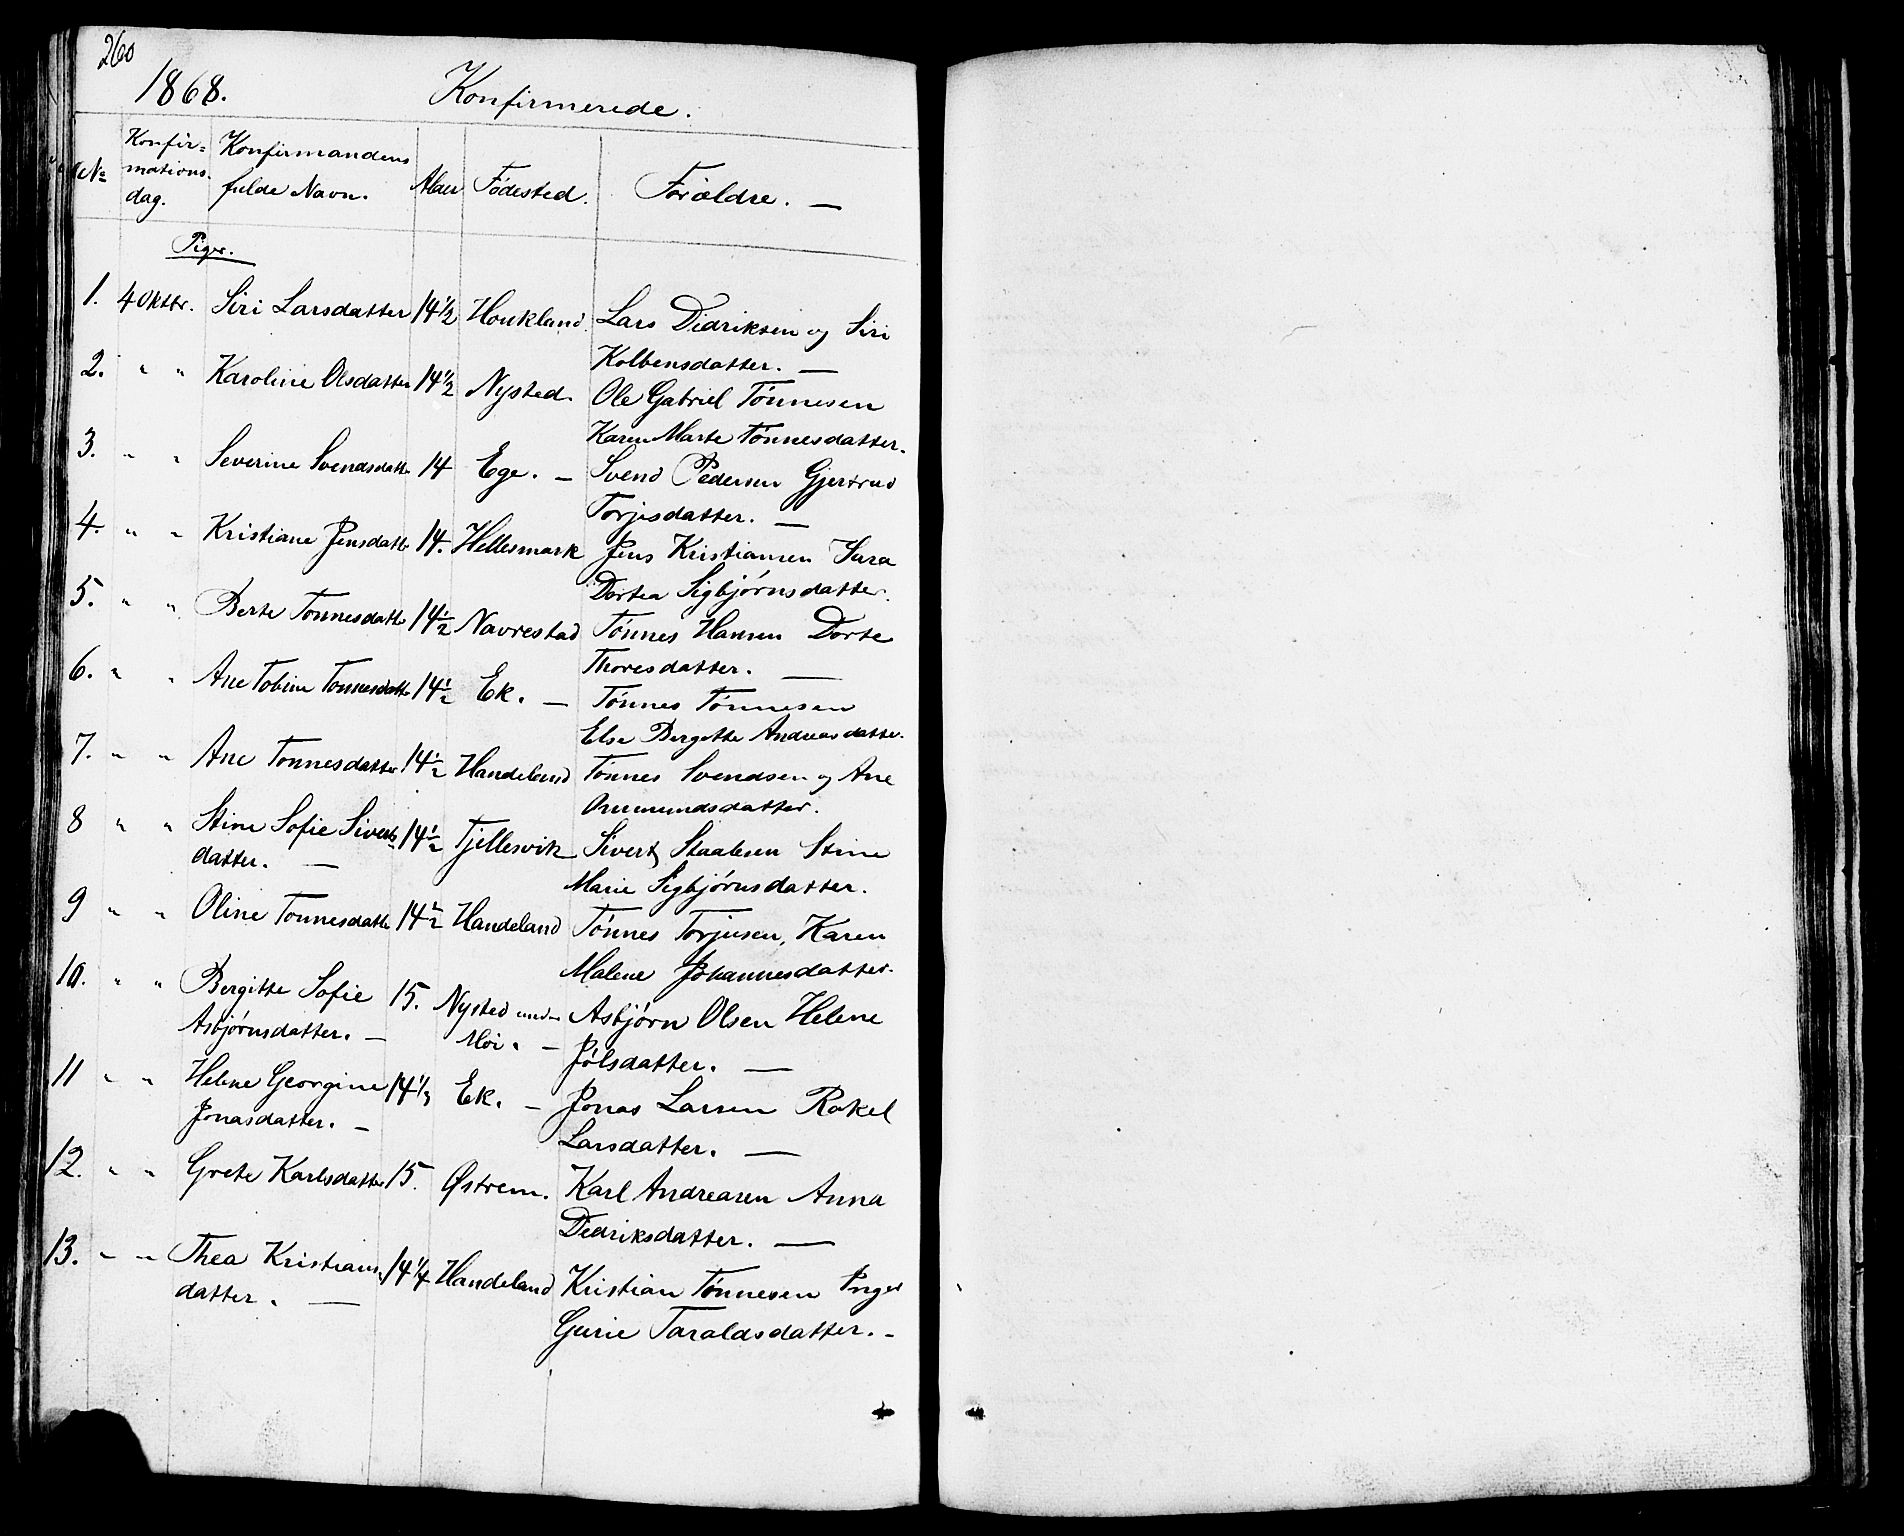 260
1868. Konfirmerede.
№ Konfir=mations.dag. Konfirmandens fulde Navn. Alder Fødested. Forældre. —
Piger.
1. 4 Oktbr. Siri Larsdatter 14 1/2 Houkland Lars Didriksen og Siri
Kolbensdatter. —
2. " " Karoline Olsdatter 14 1/2 Nysted. Ole Gabriel Tönnesen
Karen Marte Tönnesdatter.
3. " " Severine Svendsdatt 14 Ege. — Svend Pedersen Gjertrud
Torjesdatter. —
4. " " Kristiane Jensdatt 14. Hellesmark Jens Kristiansen Sara
Dortea Sigbjörnsdatter.
5. " " Berte Tonnesdatt 14 1/2 Navrestad Tönnes Hansen Dorte
Thoresdatter. —
6. " " Ane Tobine Tonnesdatt 14 1/2 Ek. — Tönnes Tönnesen
Else Bergitte Andreasdatter.
7. " " Ane Tonnesdatter 14 1/2 Handeland Tönnes Svendsen og Ane
Ommundsdatter.
8 " " Stine Sofie Siverts 14 1/2 Tjellesvik Sivert Staalesen Stine
datter. — Marie Sigbjörnsdatter.
9 " " Oline Tonnesdatt 14 1/2 Handeland Tönnes Torjusen, Karen
Malene Johannesdatter.
10. " " Bergitte Sofie 15. Nysted und Asbjörn Olsen Helene
Asbjörnsdatter. — Moi. — Jölsdatter. —
11 " " Helene Georgine 14 1/3 Ek. — Jonas Larsen Rakel
Jonasdatter. — Larsdatter. —
12. " " Grete Karlsdatter 15. Østrem. Karl Andreasen Anna
Dedriksdatter. —
13. " " Thea Kristians 14 1/4 Handeland Kristian Tönnesen Inger
datter. — Gurie Taraldsdatter. -